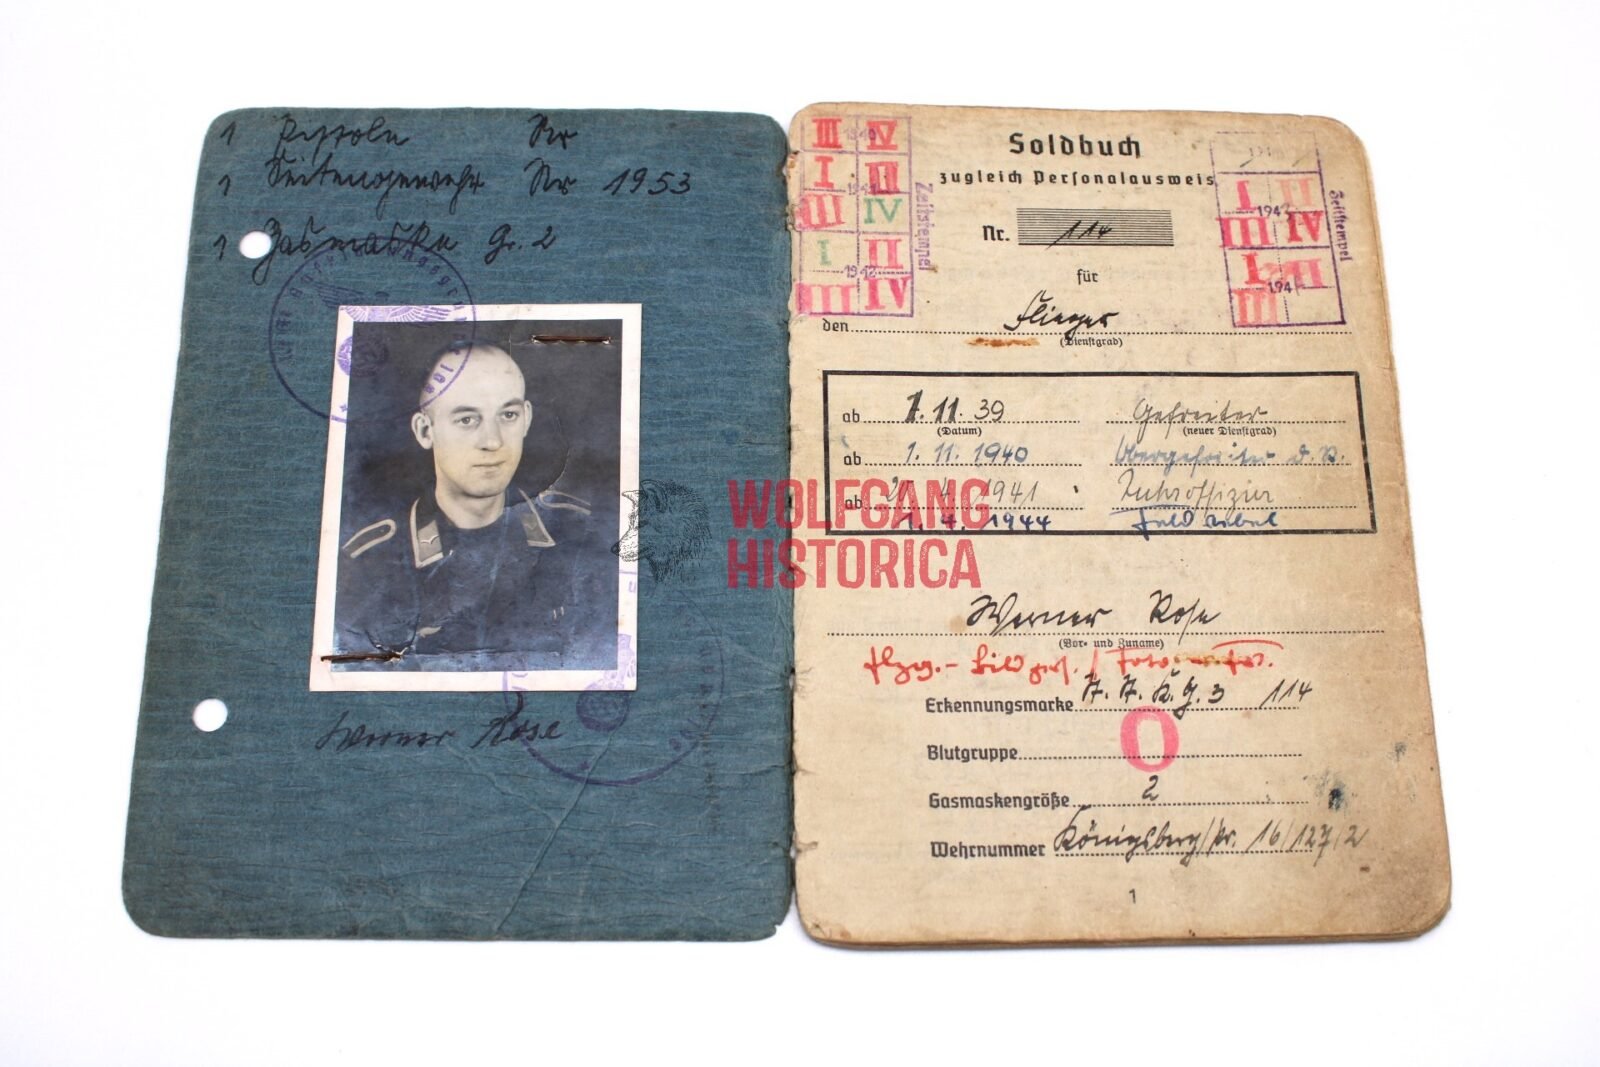 1 Pistole Nr
1 Seitengewehr Nr 1953
1 Gasmaske Gr. 2
Werner Rose
III 1940 IV
I 1941 II
III IV
I II
1942
III IV
Zeitstempel
Soldbuch
zugleich Personalausweis
Nr. 114
für
den Flieger
(Dienstgrad)
I II
194
III IV
I II
194
III
Zeitstempel
ab 1.11.39 Gefreiter
(Datum) (neuer Dienstgrad)
ab 1.11.1940 Obergefreiter d.R.
ab 20.4.1941 Unteroffizier
1.4.1944 Feldwebel
WOLFGANG
HISTORICA
Werner Rose
(Vor- und Zuname)
Erkennungsmarke 114
Blutgruppe O
Gasmaskengröße 2
Wehrnummer Königsberg/Pr. 16/127/2
1